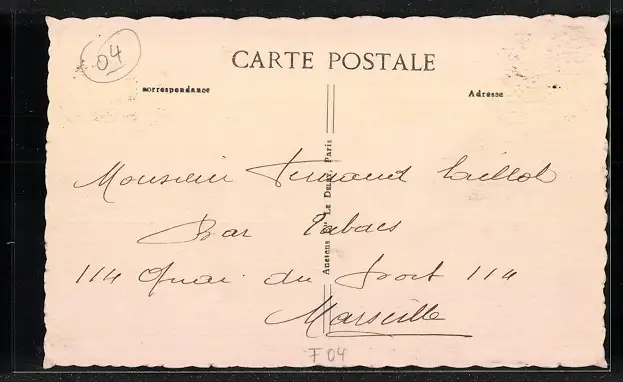 04
CARTE POSTALE
Correspondance
Adresse
Monsieur Fernand
Bar Tabacs
114 Quai du Port 114
Marseille
Anciens Etts LE DELEY, Paris
F 04